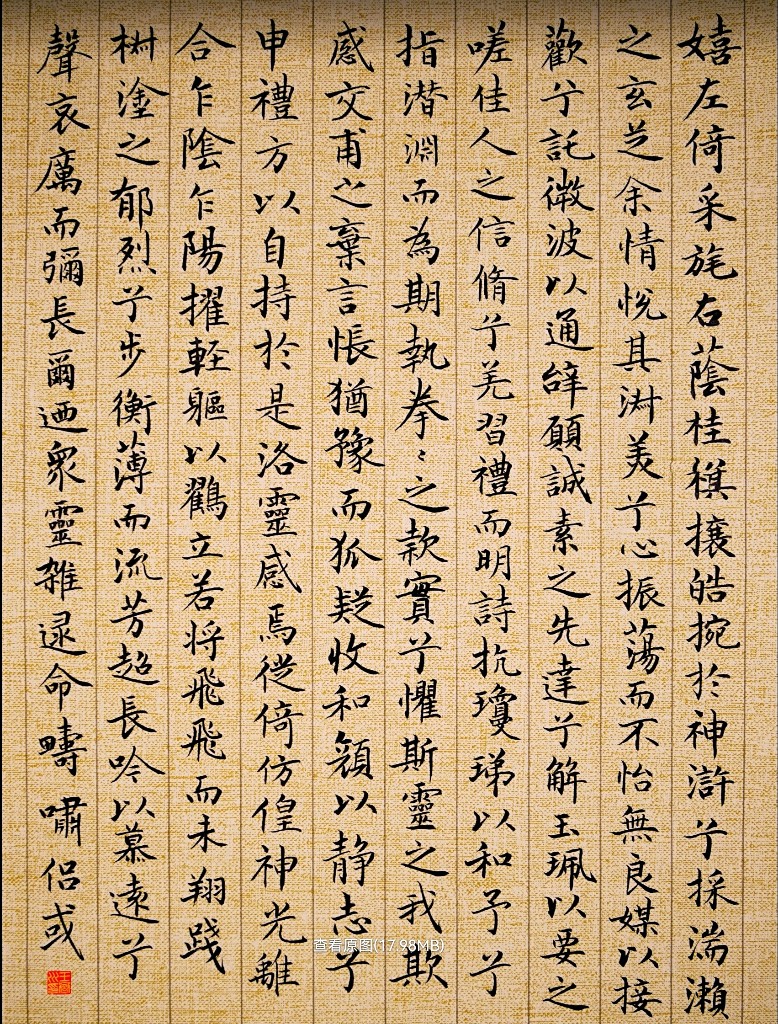 嬉左倚采旄右蔭桂旗攘皓捥於神滸兮採湍瀨
之玄芝余情悅其淑美兮心振蕩而不怡無良媒以接
歡兮託微波以通辭願誠素之先達兮解玉珮以要之
嗟佳人之信脩兮羌習禮而明詩抗瓊珶以和予兮
指潛淵而為期執拳〻之款實兮懼斯靈之我欺
感交甫之棄言悵猶豫而狐疑收和顏以静志兮
申禮方以自持於是洛靈感焉從倚仿偟神光離
合乍陰乍陽擢輕軀以鶴立若将飛飛而未翔踐
椒塗之郁烈兮步衡薄而流芳超長吟以慕遠兮
聲哀厲而彌長爾迺衆靈雜逯命疇嘯侶或
查看原图(17.98MB)